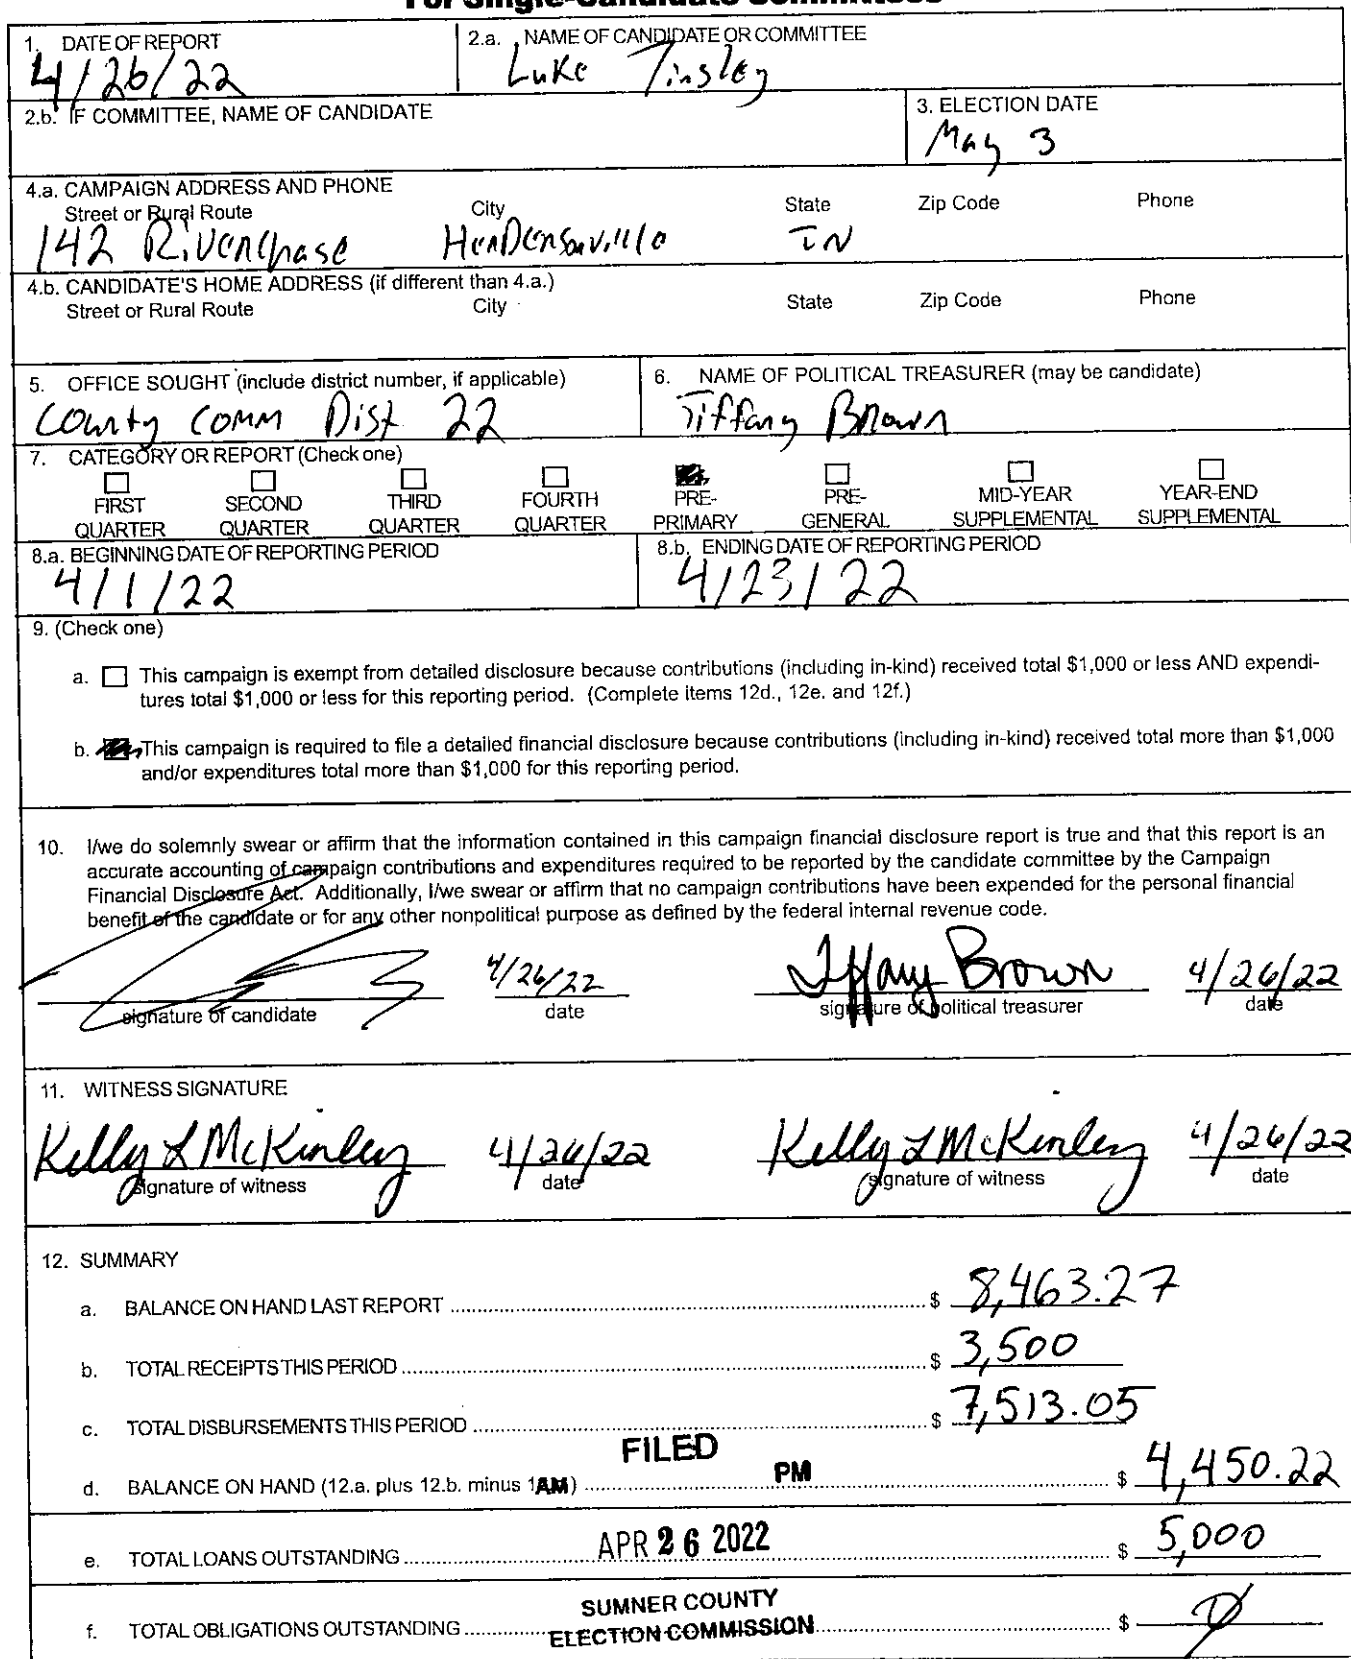 For Single-Candidate Committees
1. DATE OF REPORT
4/26/22
2.a. NAME OF CANDIDATE OR COMMITTEE
Luke Tinsley
2.b. IF COMMITTEE, NAME OF CANDIDATE
3. ELECTION DATE
May 3
4.a. CAMPAIGN ADDRESS AND PHONE
Street or Rural Route City State Zip Code Phone
142 Riverchase Hendersonville TN
4.b. CANDIDATE'S HOME ADDRESS (if different than 4.a.)
Street or Rural Route City State Zip Code Phone
5. OFFICE SOUGHT (include district number, if applicable)
County Comm Dist 22
6. NAME OF POLITICAL TREASURER (may be candidate)
Tiffany Brown
7. CATEGORY OR REPORT (Check one)
FIRST QUARTER
SECOND QUARTER
THIRD QUARTER
FOURTH QUARTER
PRE-PRIMARY
PRE-GENERAL
MID-YEAR SUPPLEMENTAL
YEAR-END SUPPLEMENTAL
8.a. BEGINNING DATE OF REPORTING PERIOD
4/1/22
8.b. ENDING DATE OF REPORTING PERIOD
4/23/22
9. (Check one)
a. This campaign is exempt from detailed disclosure because contributions (including in-kind) received total $1,000 or less AND expendi-
tures total $1,000 or less for this reporting period. (Complete items 12d., 12e. and 12f.)
b. This campaign is required to file a detailed financial disclosure because contributions (including in-kind) received total more than $1,000
and/or expenditures total more than $1,000 for this reporting period.
10. I/we do solemnly swear or affirm that the information contained in this campaign financial disclosure report is true and that this report is an
accurate accounting of campaign contributions and expenditures required to be reported by the candidate committee by the Campaign
Financial Disclosure Act. Additionally, I/we swear or affirm that no campaign contributions have been expended for the personal financial
benefit of the candidate or for any other nonpolitical purpose as defined by the federal internal revenue code.
4/26/22 Tiffany Brown 4/26/22
signature of candidate date signature of political treasurer date
11. WITNESS SIGNATURE
Kelly L McKinley 4/26/22 Kelly L McKinley 4/26/22
signature of witness date signature of witness date
12. SUMMARY
a. BALANCE ON HAND LAST REPORT $ 8,463.27
b. TOTAL RECEIPTS THIS PERIOD $ 3,500
c. TOTAL DISBURSEMENTS THIS PERIOD $ 7,513.05
FILED
d. BALANCE ON HAND (12.a. plus 12.b. minus 1AM) PM $ 4,450.22
e. TOTAL LOANS OUTSTANDING APR 26 2022 $ 5,000
SUMNER COUNTY
f. TOTAL OBLIGATIONS OUTSTANDING ELECTION COMMISSION $ Ø